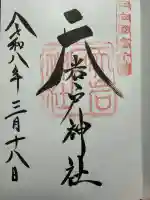 天岩戸神社
令和八年三月十八日